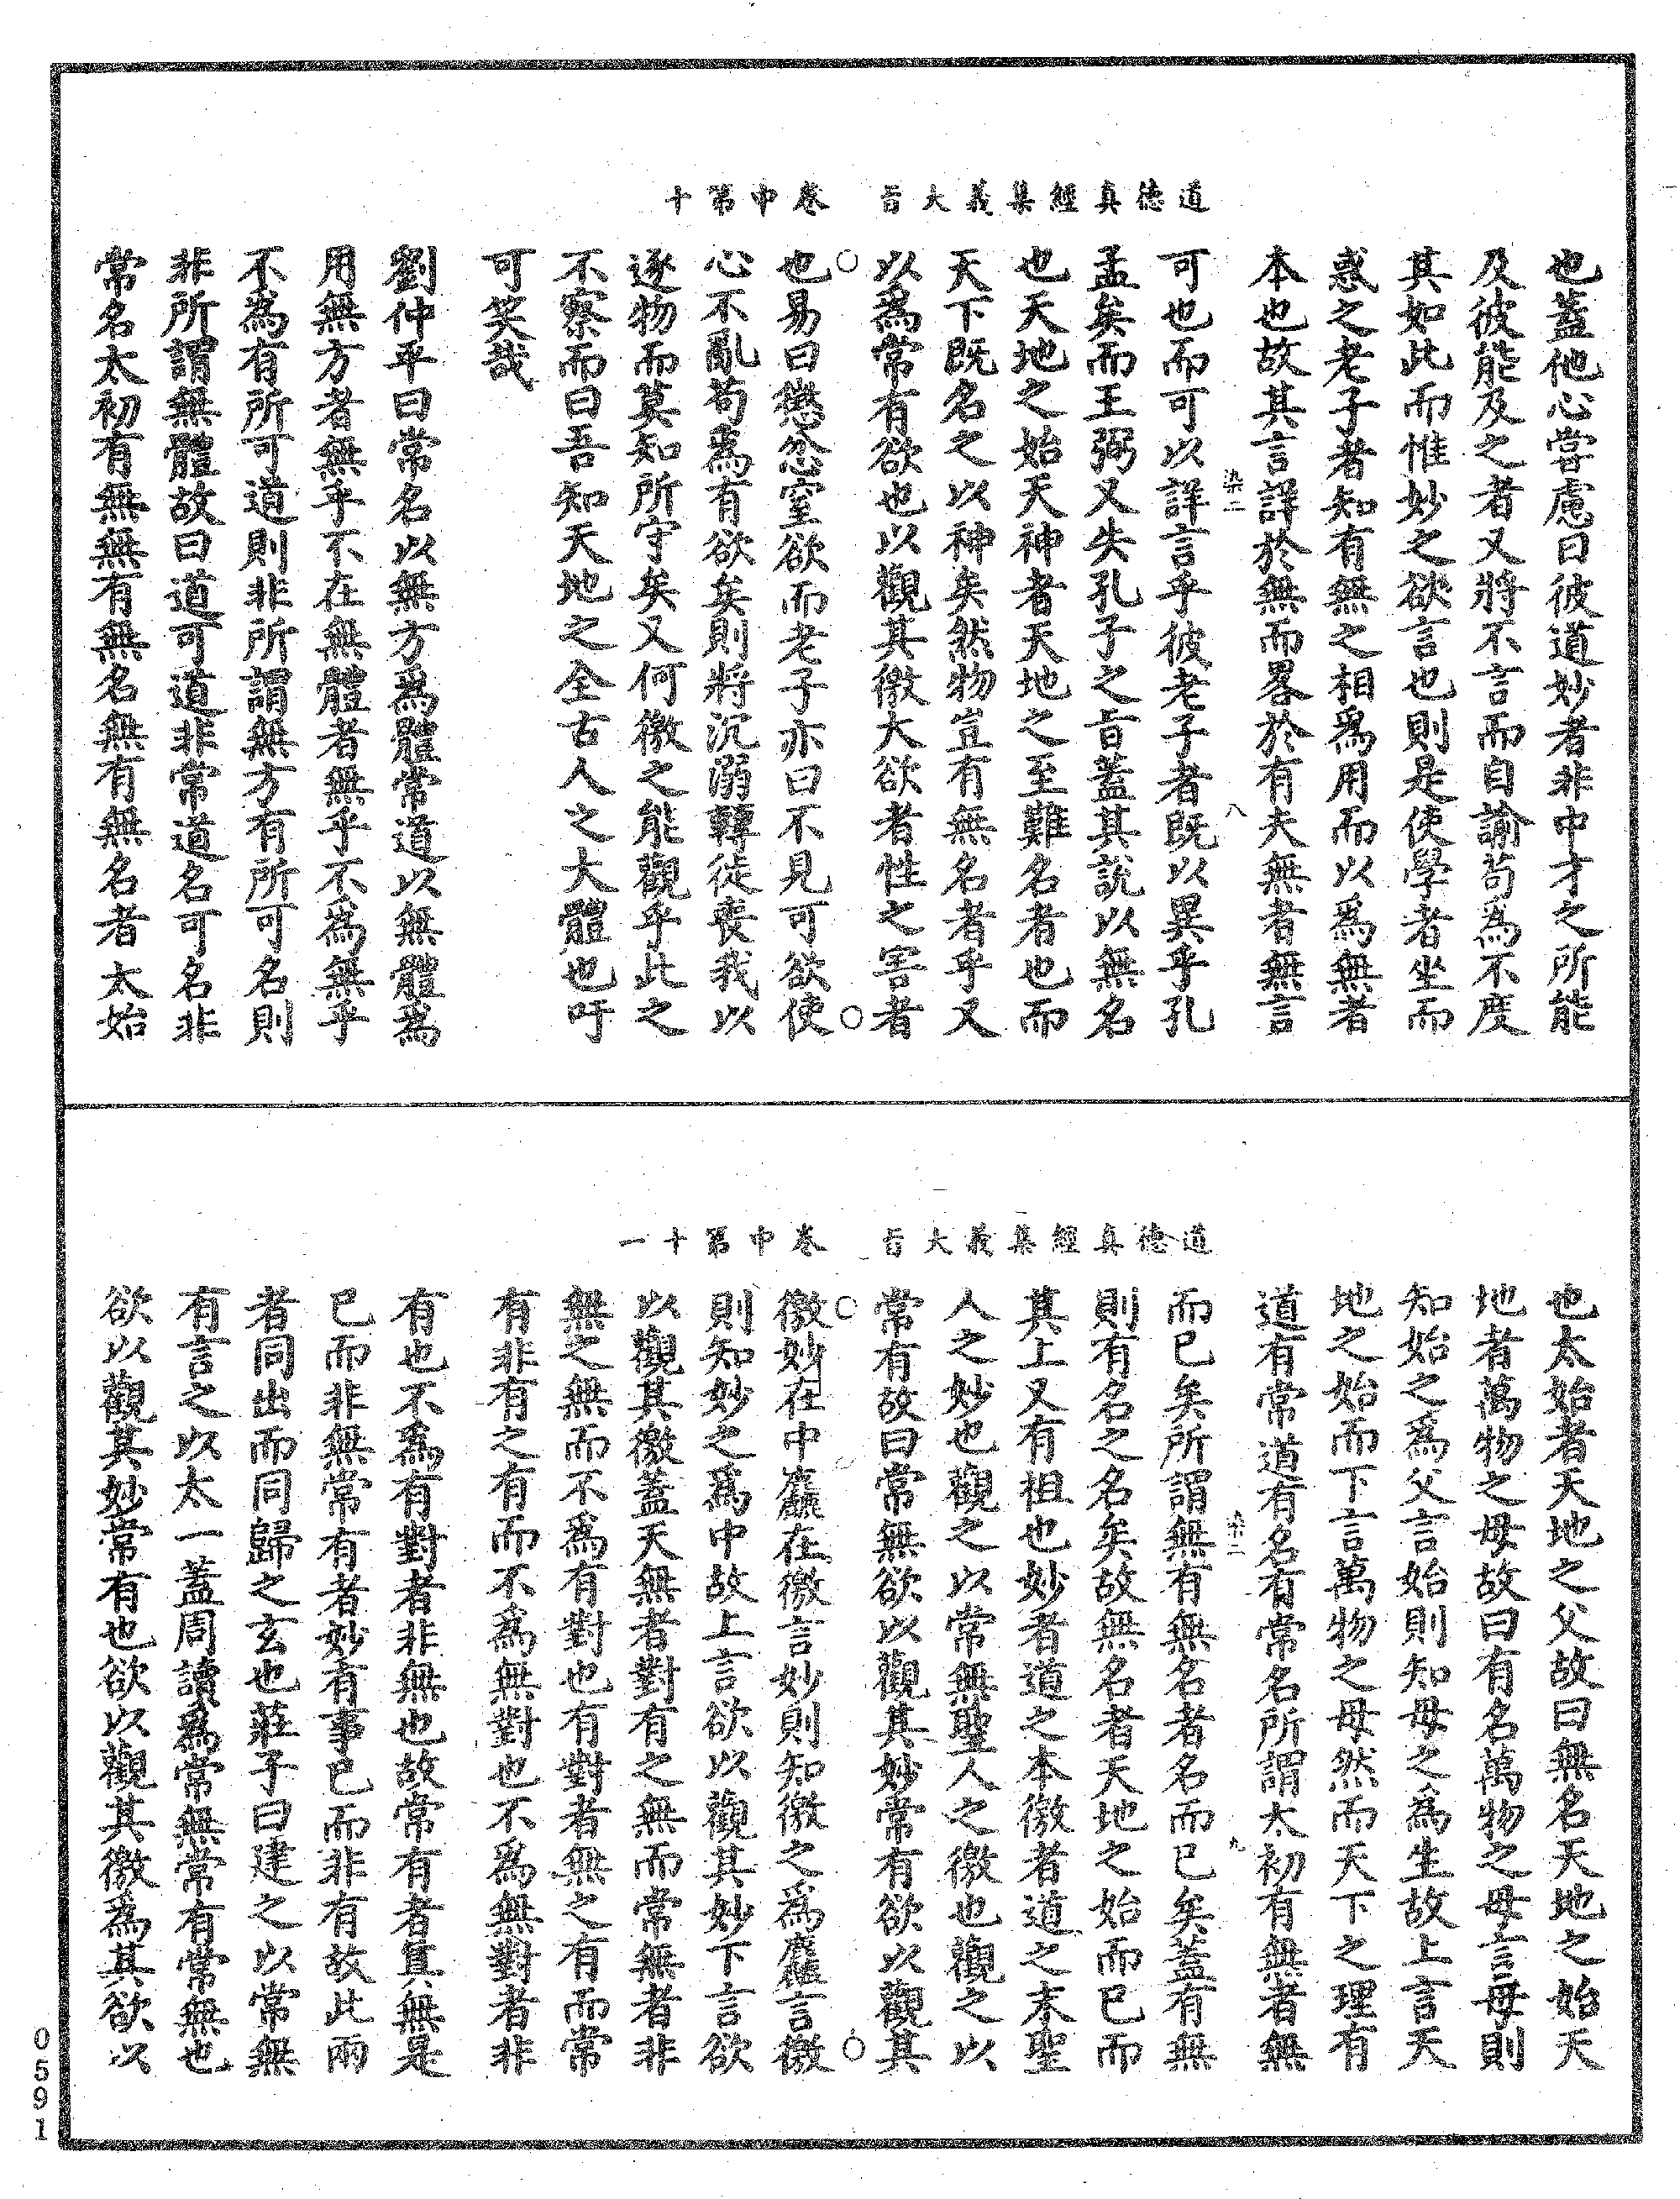 道德真經集義大旨　卷中第十
也蓋他心嘗慮曰彼道妙者非中才之所能
及彼能及之者又將不言而自諭苟為不度
其如此而惟妙之欲言也則是使學者坐而
惑之老子者知有無之相為用而以為無者
本也故其言詳於無而畧於有夫無者無言
染二
八
可也而可以詳言乎彼老子者既以異乎孔
孟矣而王弼又失孔子之旨蓋其說以無名
也天地之始天神者天地之至難名者也而
天下既名之以神矣然物豈有無名者乎又
以為常有欲也以觀其徼大欲者性之害者
也易曰懲忿窒欲而老子亦曰不見可欲使
心不亂苟為有欲矣則將沉溺轉徙喪我以
逐物而莫知所守矣又何徼之能觀乎此之
不察而曰吾知天地之全古人之大體也吁
可笑哉
劉仲平曰常名以無方為體常道以無體為
用無方者無乎不在無體者無乎不為無乎
不為有所可道則非所謂無方有所可名則
非所謂無體故曰道可道非常道名可名非
常名太初有無無有無名無有無名者太始
道德真經集義大旨　卷中第十一
也太始者天地之父故曰無名天地之始天
地者萬物之母故曰有名萬物之母言母則
知始之為父言始則知母之為生故上言天
地之始而下言萬物之母然而天下之理有
道有常道有名有常名所謂太初有無者無
染二
九
而已矣所謂無有無名者名而已矣蓋有無
則有名之名矣故無名者天地之始而已而
其上又有祖也妙者道之本徼者道之末聖
人之妙也觀之以常無聖人之徼也觀之以
常有故曰常無欲以觀其妙常有欲以觀其
徼妙在中麤在徼言妙則知徼之為麤言徼
則知妙之為中故上言欲以觀其妙下言欲
以觀其徼蓋天無者對有之無而常無者非
無之無而不為有對也有對者無之有而常
有非有之有而不為無對也不為無對者非
有也不為有對者非無也故常有者真無是
已而非無常有者妙有事已而非有故此兩
者同出而同歸之玄也莊子曰建之以常無
有言之以太一蓋周讀為常無常有常無也
欲以觀其妙常有也欲以觀其徼為其欲以
0591